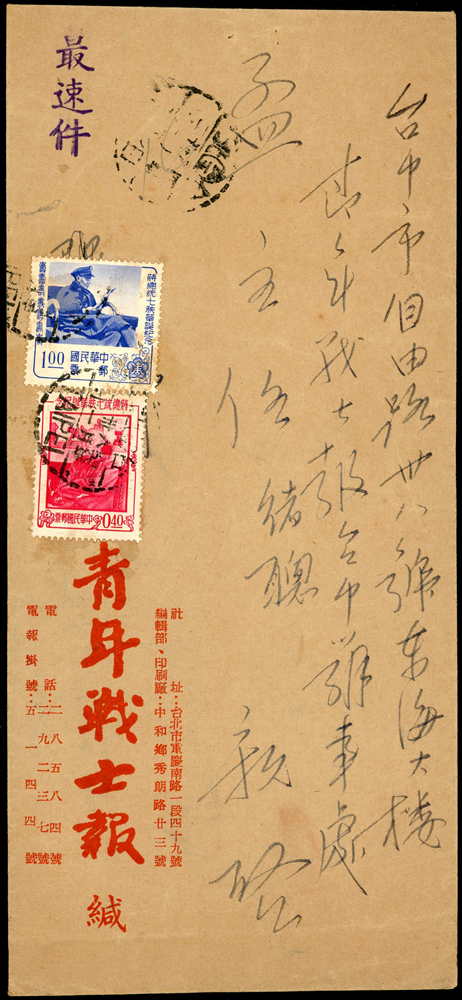 台中市自由路廿八號東海大樓
青年戰士報台中辦事處
孟主任緒聰 親啓
最速件
蔣總統七秩華誕紀念
中華民國郵票
1.00
蔣總統七秩華誕紀念
中華民國郵票
0.40
社 址:台北市重慶南路一段四十九號
編輯部、印刷廠:中和鄉秀朗路廿三號
青年戰士報 緘
電 話:二八五八四號
二九二三七號
電報掛號:五一四四號